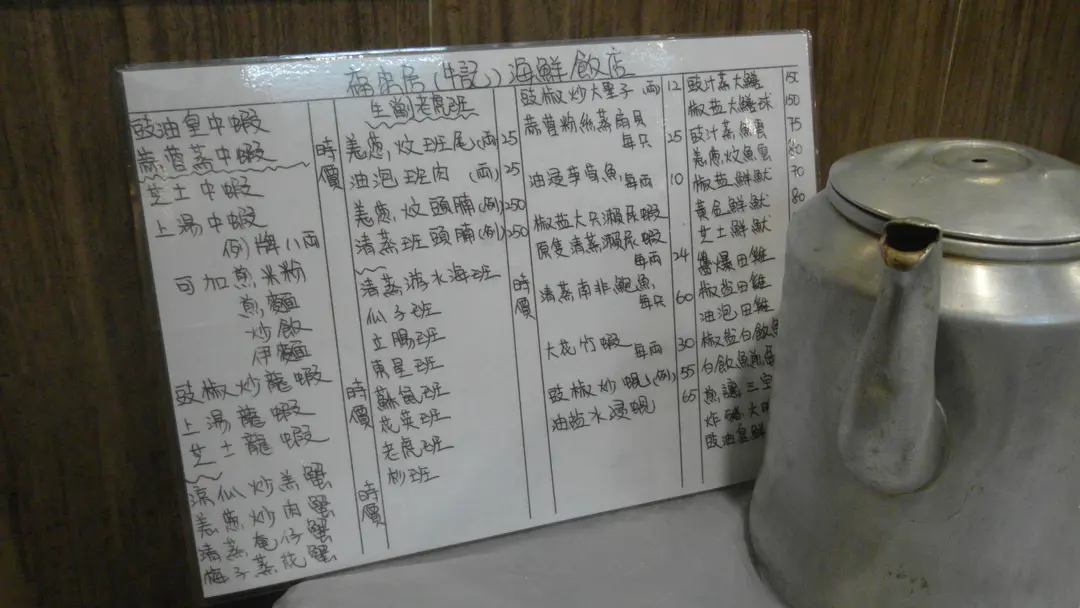 福來居(牛記)海鮮飯店
豉油皇中蝦
蒜茸蒸中蝦
芝士中蝦
上湯中蝦
例牌八両
可加煎米粉
煎麵
炒飯
伊麵
時價
豉椒炒龍蝦
上湯龍蝦
芝士龍蝦
時價
涼瓜炒羔蟹
羌蔥炒肉蟹
清蒸奄仔蟹
梅子蒸花蟹
時價
生劏老虎班
羌蔥炆班尾(両) 25
油泡班肉(両) 25
羌蔥炆頭腩(例) 250
清蒸班頭腩(例) 250
清蒸游水海班
瓜子班
立腸班
東星班
蘇鼠班
花英班
老虎班
杉班
時價
豉椒炒大聖子(両) 12
蒜茸粉絲蒸扇貝
每只 25
油浸筍魚每両 10
椒盐大只瀨尿蝦
原隻清蒸瀨尿蝦
每両 24
清蒸南非鮑魚
每只 60
大花竹蝦每両 30
豉椒炒蜆(例) 55
油盐水浸蜆 65
豉汁蒸大鱔 150
椒盐大鱔球 150
豉汁蒸魚雲 75
羌蔥炆魚雲 80
椒盐鮮魷 70
黃金鮮魷 80
芝士鮮魷
醬爆田雞
椒盐田雞
油泡田雞
椒盐白飯魚
白飯魚煎
煎讓三
炸
豉油皇鮮